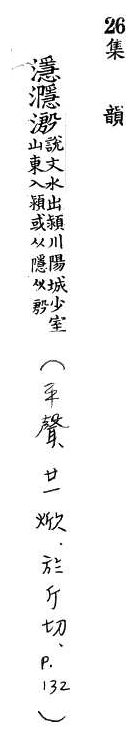 26 集韻
濦㶏溵
說文水出潁川陽城少室
山東入潁或从隱从殷
(平聲廿一欣．於斤切、P.132)